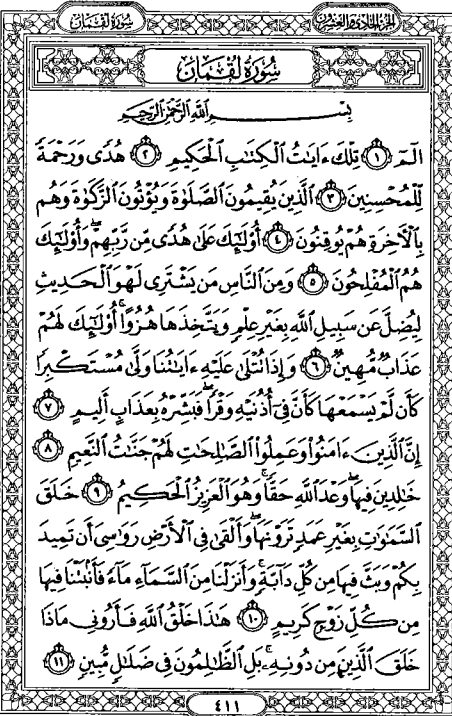 سُورَةُ لُقْمَانَ
الجزء الحادي والعشرون
سُورَةُ لُقْمَانَ
بِسْمِ ٱللَّهِ ٱلرَّحْمَٰنِ ٱلرَّحِيمِ
الٓمٓ ١ تِلْكَ ءَايَٰتُ ٱلْكِتَٰبِ ٱلْحَكِيمِ ٢ هُدًى وَرَحْمَةً
لِّلْمُحْسِنِينَ ٣ ٱلَّذِينَ يُقِيمُونَ ٱلصَّلَوٰةَ وَيُؤْتُونَ ٱلزَّكَوٰةَ وَهُم
بِٱلْءَاخِرَةِ هُمْ يُوقِنُونَ ٤ أُو۟لَٰٓئِكَ عَلَىٰ هُدًى مِّن رَّبِّهِمْ ۖ وَأُو۟لَٰٓئِكَ
هُمُ ٱلْمُفْلِحُونَ ٥ وَمِنَ ٱلنَّاسِ مَن يَشْتَرِى لَهْوَ ٱلْحَدِيثِ
لِيُضِلَّ عَن سَبِيلِ ٱللَّهِ بِغَيْرِ عِلْمٍ وَيَتَّخِذَهَا هُزُوًا ۚ أُو۟لَٰٓئِكَ لَهُمْ
عَذَابٌ مُّهِينٌ ٦ وَإِذَا تُتْلَىٰ عَلَيْهِ ءَايَٰتُنَا وَلَّىٰ مُسْتَكْبِرًا
كَأَن لَّمْ يَسْمَعْهَا كَأَنَّ فِىٓ أُذُنَيْهِ وَقْرًا ۖ فَبَشِّرْهُ بِعَذَابٍ أَلِيمٍ ٧
إِنَّ ٱلَّذِينَ ءَامَنُوا۟ وَعَمِلُوا۟ ٱلصَّٰلِحَٰتِ لَهُمْ جَنَّٰتُ ٱلنَّعِيمِ ٨
خَٰلِدِينَ فِيهَا ۖ وَعْدَ ٱللَّهِ حَقًّا ۚ وَهُوَ ٱلْعَزِيزُ ٱلْحَكِيمُ ٩ خَلَقَ
ٱلسَّمَٰوَٰتِ بِغَيْرِ عَمَدٍ تَرَوْنَهَا ۖ وَأَلْقَىٰ فِى ٱلْأَرْضِ رَوَٰسِىَ أَن تَمِيدَ
بِكُمْ وَبَثَّ فِيهَا مِن كُلِّ دَآبَّةٍ ۚ وَأَنزَلْنَا مِنَ ٱلسَّمَآءِ مَآءً فَأَنۢبَتْنَا فِيهَا
مِن كُلِّ زَوْجٍ كَرِيمٍ ١٠ هَٰذَا خَلْقُ ٱللَّهِ فَأَرُونِى مَاذَا
خَلَقَ ٱلَّذِينَ مِن دُونِهِۦ ۚ بَلِ ٱلظَّٰلِمُونَ فِى ضَلَٰلٍ مُّبِينٍ ١١
٤١١